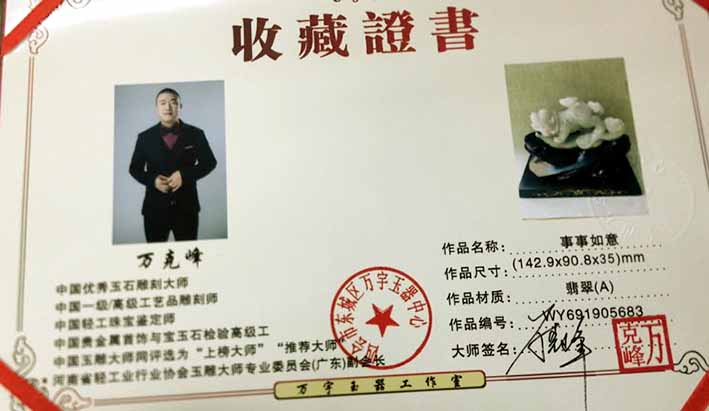 收藏證書
万克峰
中国优秀玉石雕刻大师
中国一级/高级工艺品雕刻师
中国轻工珠宝鉴定师
中国贵金属首饰与宝玉石检验高级工
中国玉雕大师网评选为“上榜大师” “推荐大师”
河南省轻工业行业协会玉雕大师专业委员会(广东)副会长
作品名称: 事事如意
作品尺寸: (142.9x90.8x35)mm
作品材质: 翡翠(A)
作品编号: WY691905683
大师签名:
万克峰
市东城区万宇玉器中心
万宇玉器工作室